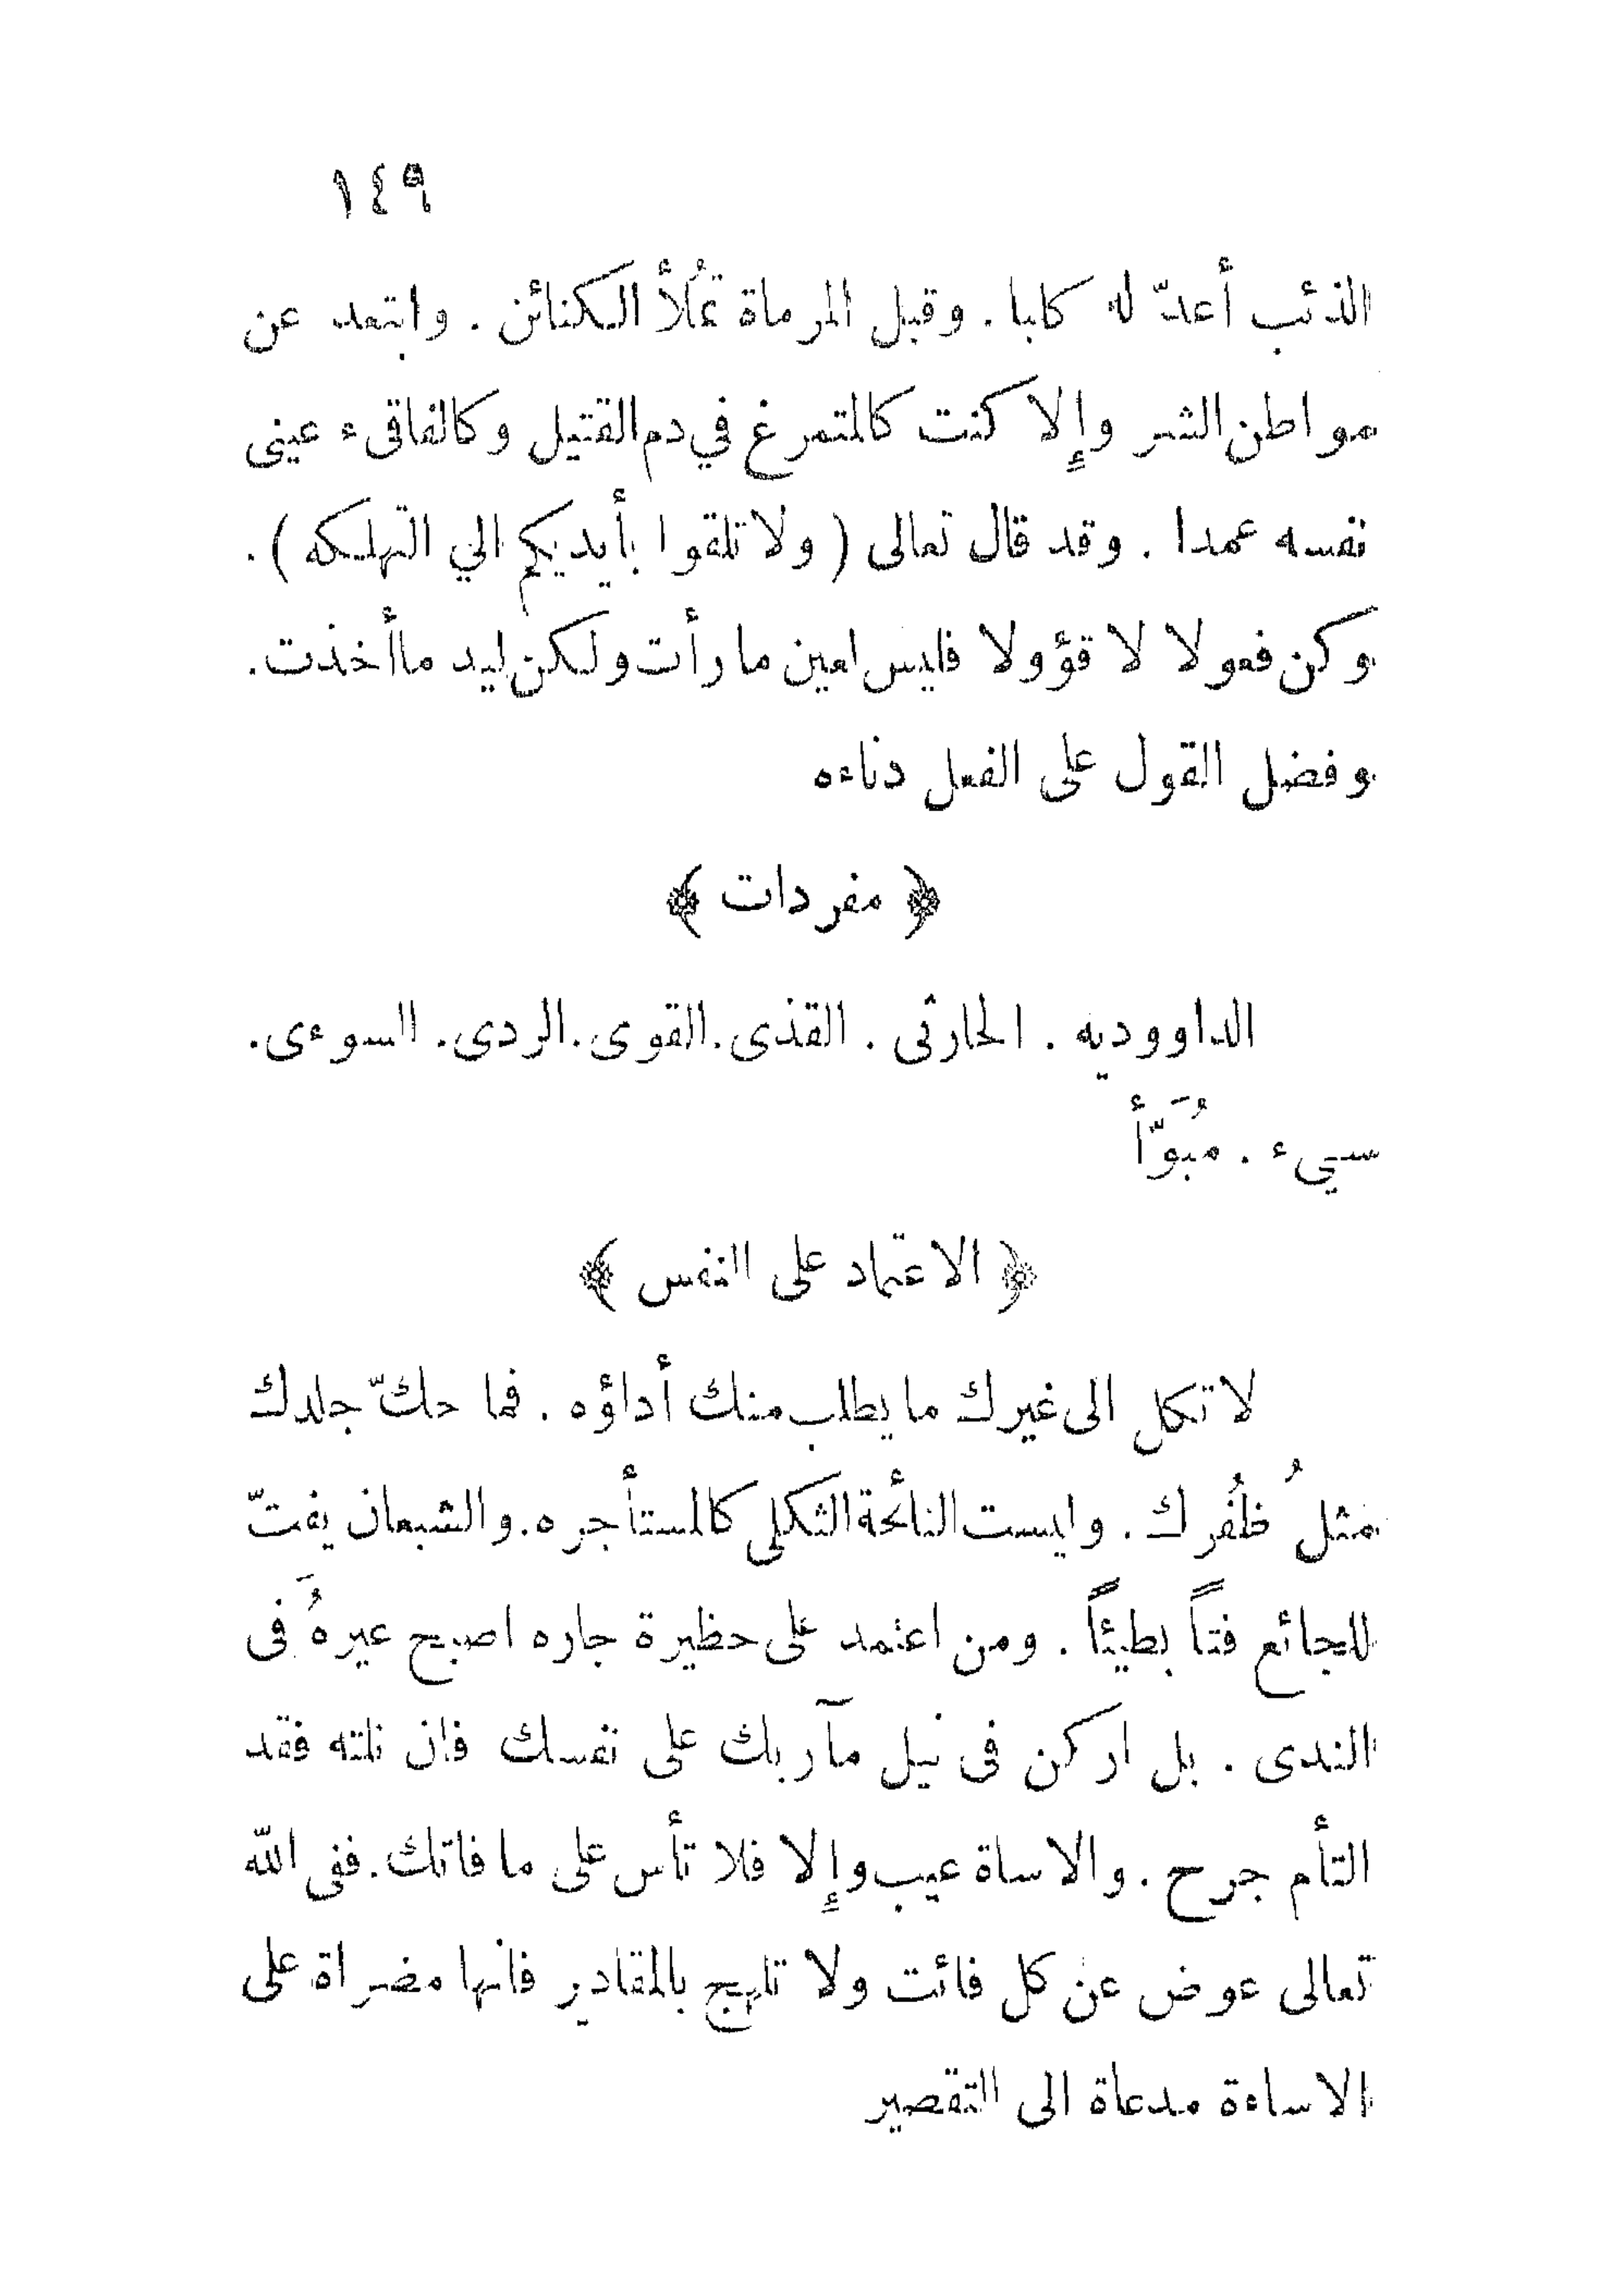 ١٤٩
الذئب أعدّ له كلبا . وقبل المرماة تُملأ الكنائن . وابتعد عن
مواطن الشر وإلا كنت كالمتمرغ في دم القتيل وكالفاقىء عينى
نفسه عمدا . وقد قال تعالى ( ولا تلقوا بأيديكم الي التهلكه ) .
وكن فعولا لا قؤولا فليس لعين ما رأت ولكن ليد ما أخذت .
وفضل القول على الفعل دناءه
﴿ مفردات ﴾
الداووديه . الحارثى . القذى . القوى . الردى . السوءى .
سييء . مُبَوّأ
﴿ الاعتماد على النفس ﴾
لا تكل الى غيرك ما يطلب منك أداؤه . فما حكّ جلدك
مثلُ ظُفرك . وليست النائحة الثكلى كالمستأجره . والشبعان يفتّ
للجائع فتاً بطيئاً . ومن اعتمد على حظيرة جاره اصبح عيرهُ فى
الندى . بل اركن فى نيل مآربك على نفسك فان نلته فقد
التأم جرح . والاساة عيب وإلا فلا تأس على ما فاتك . ففى الله
تعالى عوض عن كل فائت ولا تلهج بالمقادير فانها مضراة على
الاساءة مدعاة الى التقصير